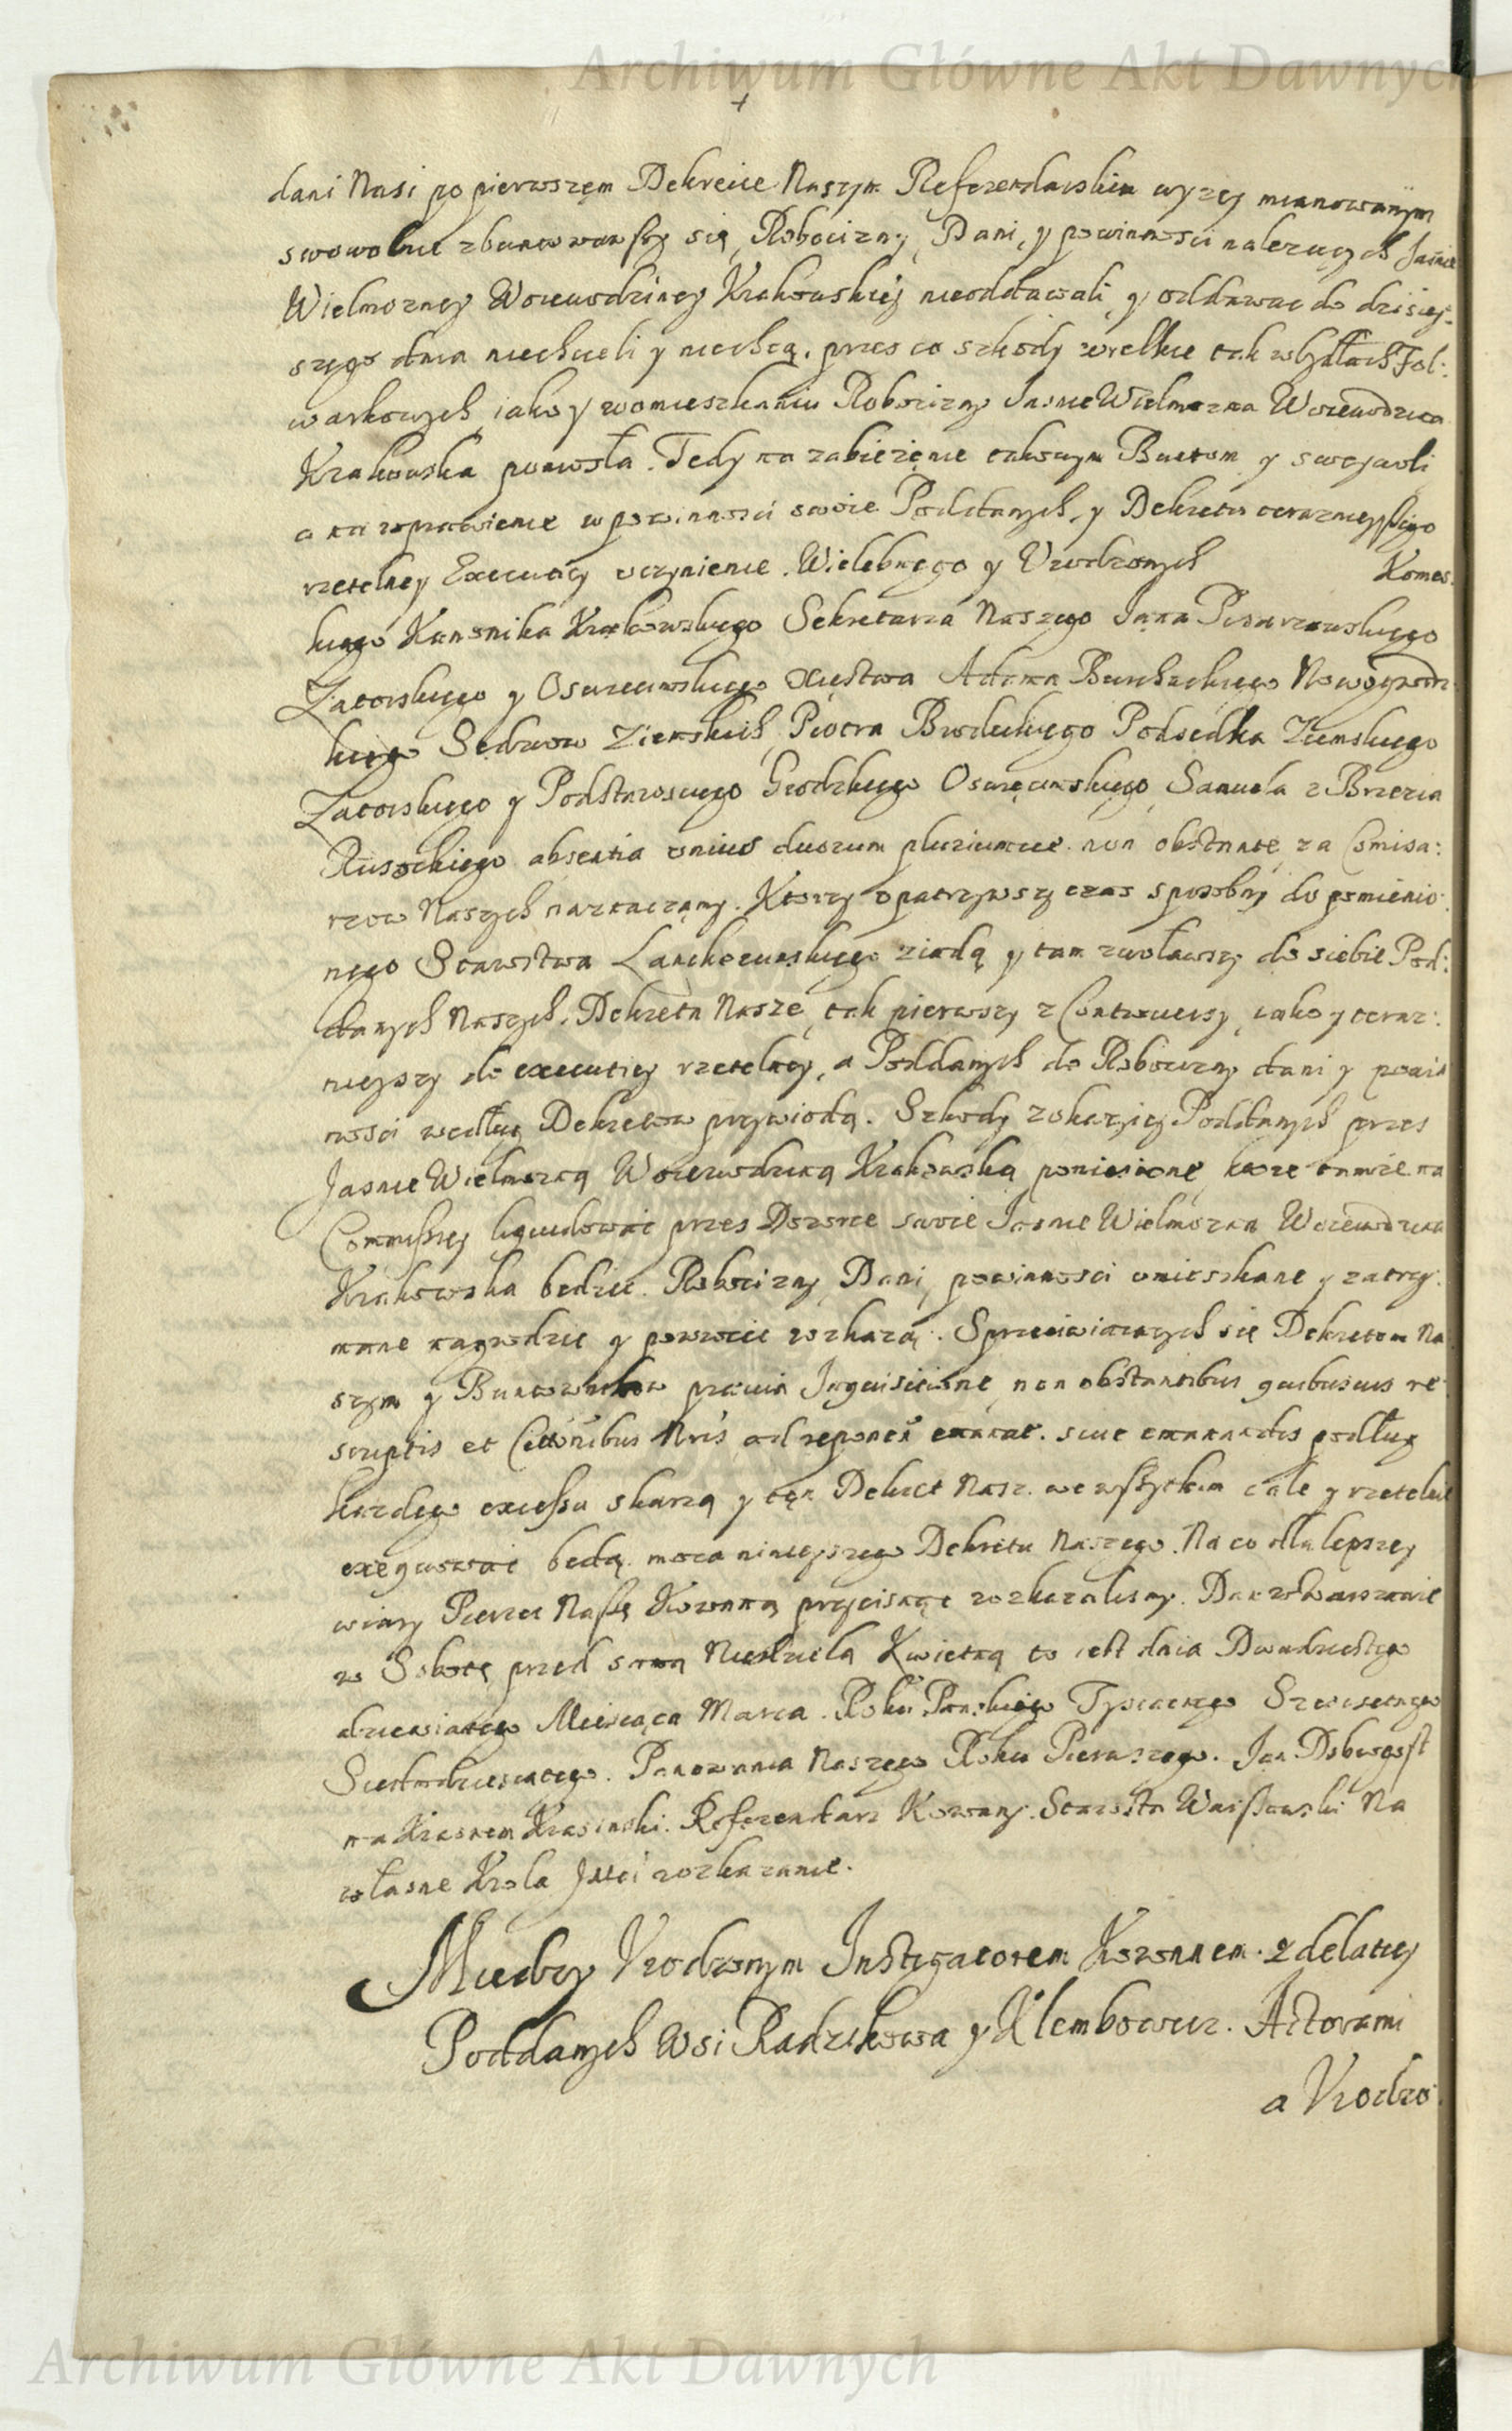 Archiwum Główne Akt Dawnych
dani Nasi po pierwszęm Dekrecie Naszym Referendarskim wyzey mianowanym
swowolnie zbuntowawszy się, Robocizny, Dani, y powinnosci nalezących Jasnie
Wielmozney Woiewodziney Krakowskiey nieoddawali, y oddawac do dzisiey-
szego dnia niechcieli y niechcą, przes co szkody wielkie tak w bydłach Fol:
warkowych, iako y w omieszkaniu Robocizny Jasnie Wielmozna Woiewodzina
Krakowska poniosła. Tedy na zabiezęnie takowym Buntom y sweywoli
a na wprawienie w powinnosci swoie Poddanych, y Dekretu teraznieyszego
rzetelney Executiey uczynienie. Wielebnego y Urodzonych Komos
kiego Kanonika Krakowskiego Sekretarza Naszego Jana Pisarzowskiego
Zatorskiego y Oswiecimskiego Xięstwa Adama Nowogrodz
kiego Sędziow Ziemskich, Piotra Podsędka Ziemskiego
Zatorskiego y Podstarosciego Grodzkiego Oswięcimskiego, Samuela z Brzezia
Rusockiego absentia unius duorum pluriumve non obstante, za Comisa:
rzow Naszych naznaczamy. Ktorzy opatrzywszy czas sposobny do pomienio:
nego Starostwa Lanckorunskiego ziadą y tam zwoławszy do siebie Pod:
danych Naszych, Dekreta Nasze, tak pierwszy z Controversy, iako y teraz:
nieyszy do executiey rzetelney, a Poddanych do Robocizny dani y powin
nosci według Dekretow przywiodą. Szkody z okaziey Poddanych przes
Jasnie Wielmozną Woiewodziną Krakowską poniesione, ktore tamze na
Commissiey liquidowac przes Dozorce swoie Jasnie Wielmozna Woiewodzina
Krakowska bedzie. Robocizny, Dani, powinnosci omieszkane y zatrzy:
mane nagrodzic y powrocic rozkazą. Sprzeciwiaiących się Dekretom Na
szym y Buntownikow praevia Inquisicione, non obstantibus quibusvis re
scriptis et Nris ad sive emanandis podług
kazdego excessu skarzą y tęn Dekret Nasz we wszytkim cale y rzetelnie
exequowac bedą mocą ninieyszego Dekretu Naszego. Na co dla lepszey
wiary Pieczec Naszą Koronną przycisnąc rozkazalismy. Dan w Warszawie
w Sobotę przed samą Niedzielą Kwietną to iest dnia Dwudziestego
dziewiątego Miesiąca Marca. Roku Panskiego Tysiącnego Szescsetnego
Siedmdziesiątego. Panowania Naszego Roku Pierwszego. Jan Dobrogost
na Krasnem Krasinski. Referendarz Koronny. Starosta Warszawski Na
własne Krola Jmci rozkazanie.
Miedzy Urodzonym Instigatorem Koronnem z delatiey
Poddanych Wsi Radzikowa y Klembowiec. Actorami
a Urodzo
Archiwum Główne Akt Dawnych